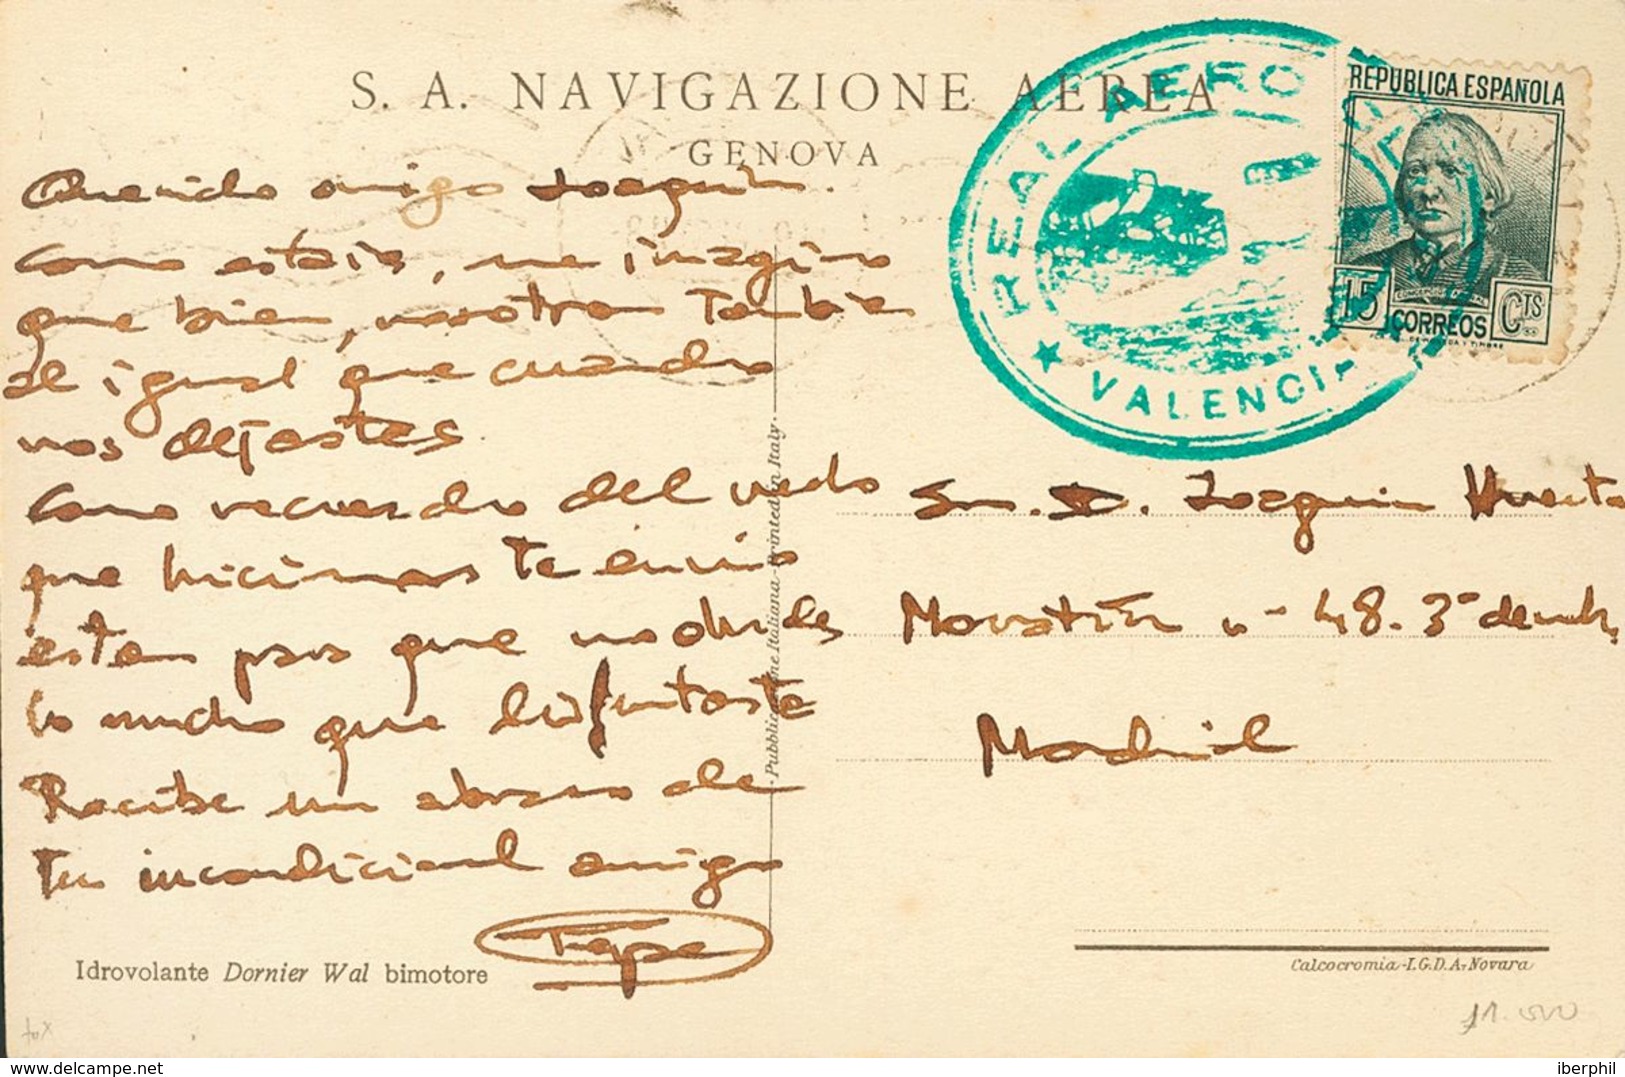 S. A. NAVIGAZIONE AEREA
GENOVA
REAL AERO
VALENCIA
REPUBLICA ESPAÑOLA
15 CORREOS CTS
Querido amigo Joaquin.
Como estais, me imagino
que bien, nosotros tambien
al igual que cuando
nos dejastes.
Como recuerdo del vuelo
que hicimos te envio
esta para que no olvides
lo mucho que disfrutaste
Recibe un abrazo de
tu incondicional amigo
Pepe
Sr. D. Joaquin Huerta
Moratín 48. 3º
Madrid
Pubblicazione Italiana - Printed in Italy.
Idrovolante Dornier Wal bimotore
Calcocromia-I.G.D.A-Novara
iberphil